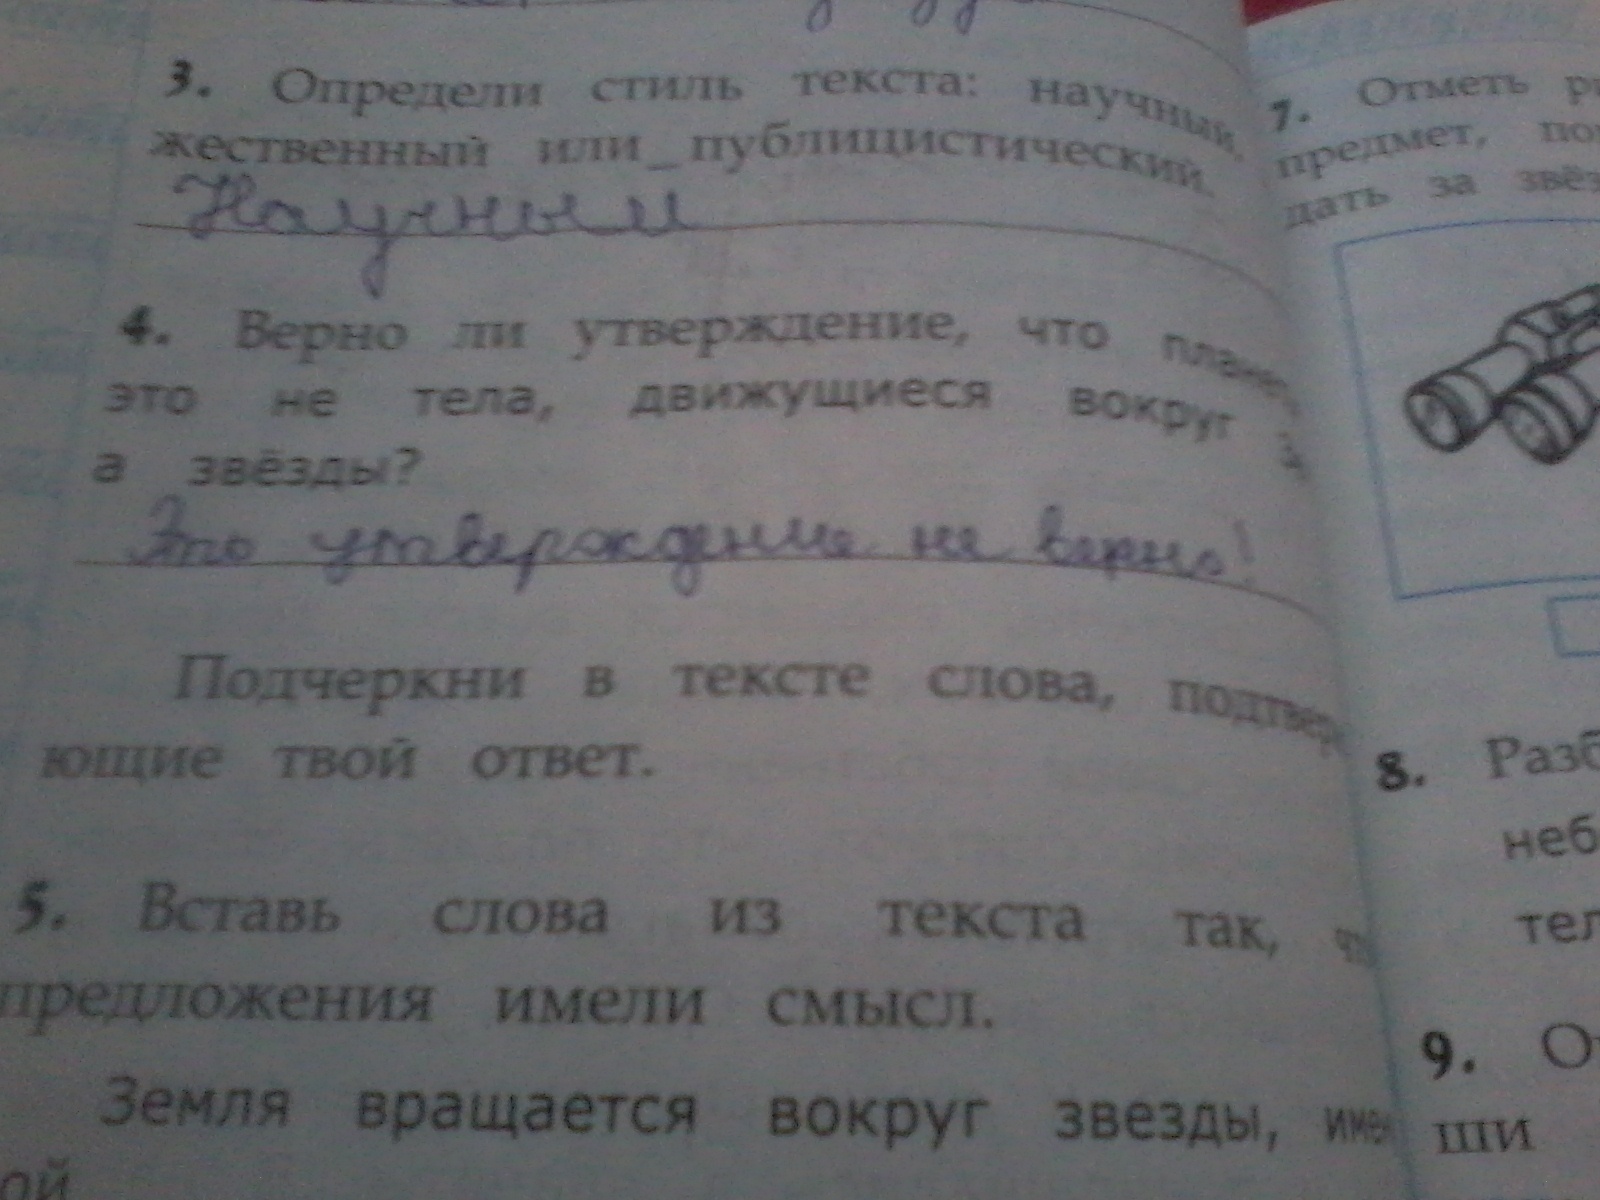 3. Определи стиль текста: научный,
жественный или публицистический.
Научный
4. Верно ли утверждение, что планет
это не тела, движущиеся вокруг
а звёзды?
Это утверждение не верно!
Подчеркни в тексте слова, подтвер
ющие твой ответ.
5. Вставь слова из текста так, чт
предложения имели смысл.
Земля вращается вокруг звезды, имен
ой
7. Отметь ри
предмет, по
дать за звёз
8. Разб
неб
тел
9. От
ши